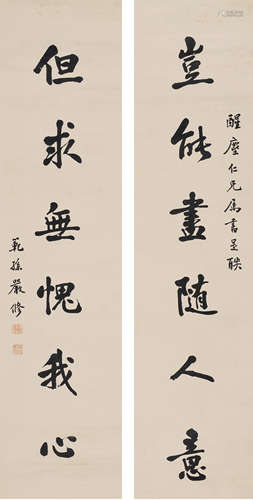 醒塵仁兄屬書是聯
豈能盡随人意
但求無愧我心
範孫嚴修